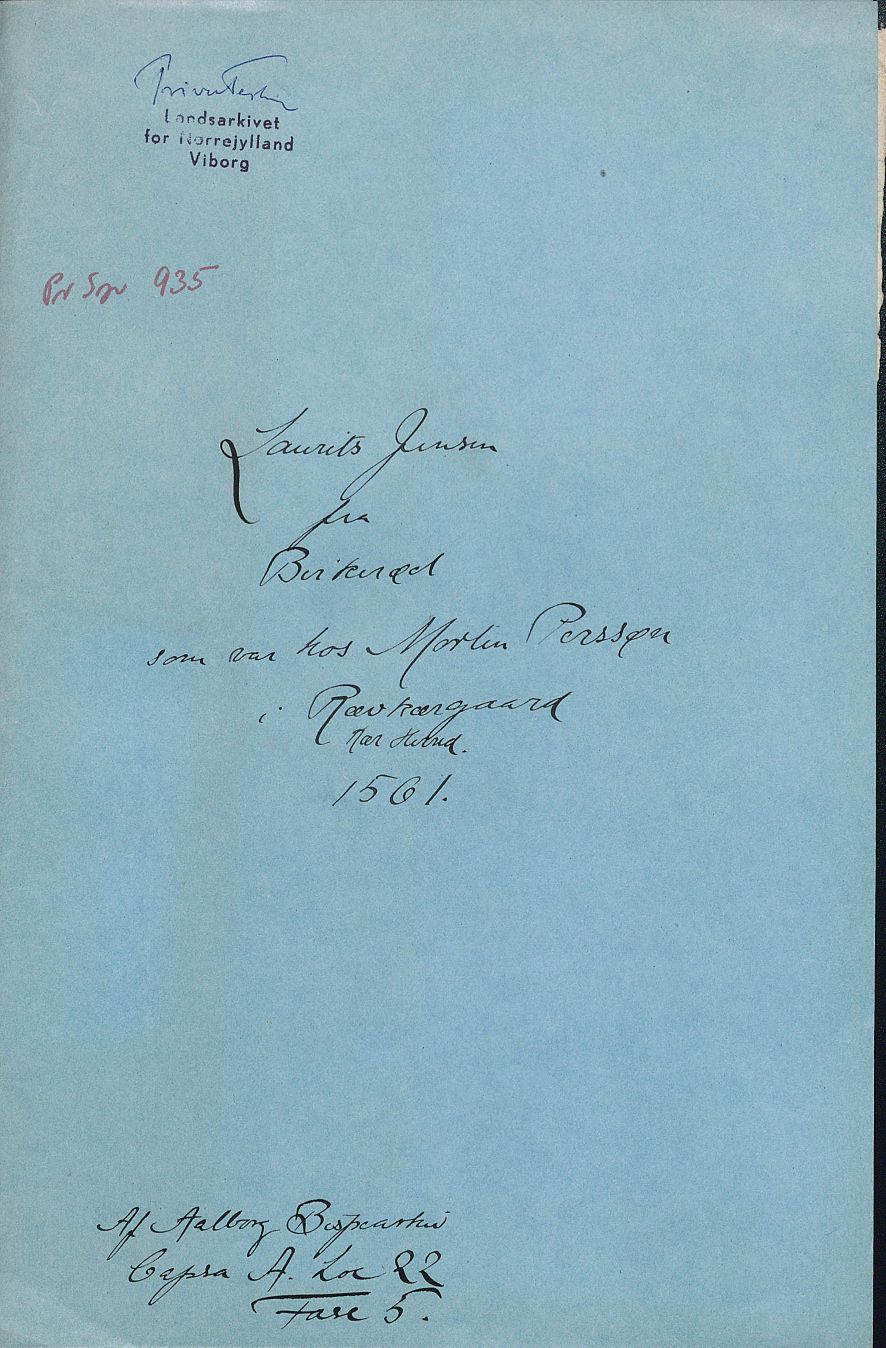 Privatarkiv
Landsarkivet
for Nørrejylland
Viborg
Pr Spr 935
Laurits Jensen
fra
Birkerød
som var hos Morten Perssøn
i Rævkærgaard
nær
1561.
Af Aalborg Bispearkiv
Capsa A. Loc 22
Fasc 5.